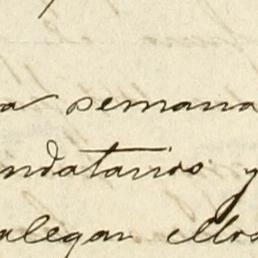 a semana
ndatarios y
alegan ellos